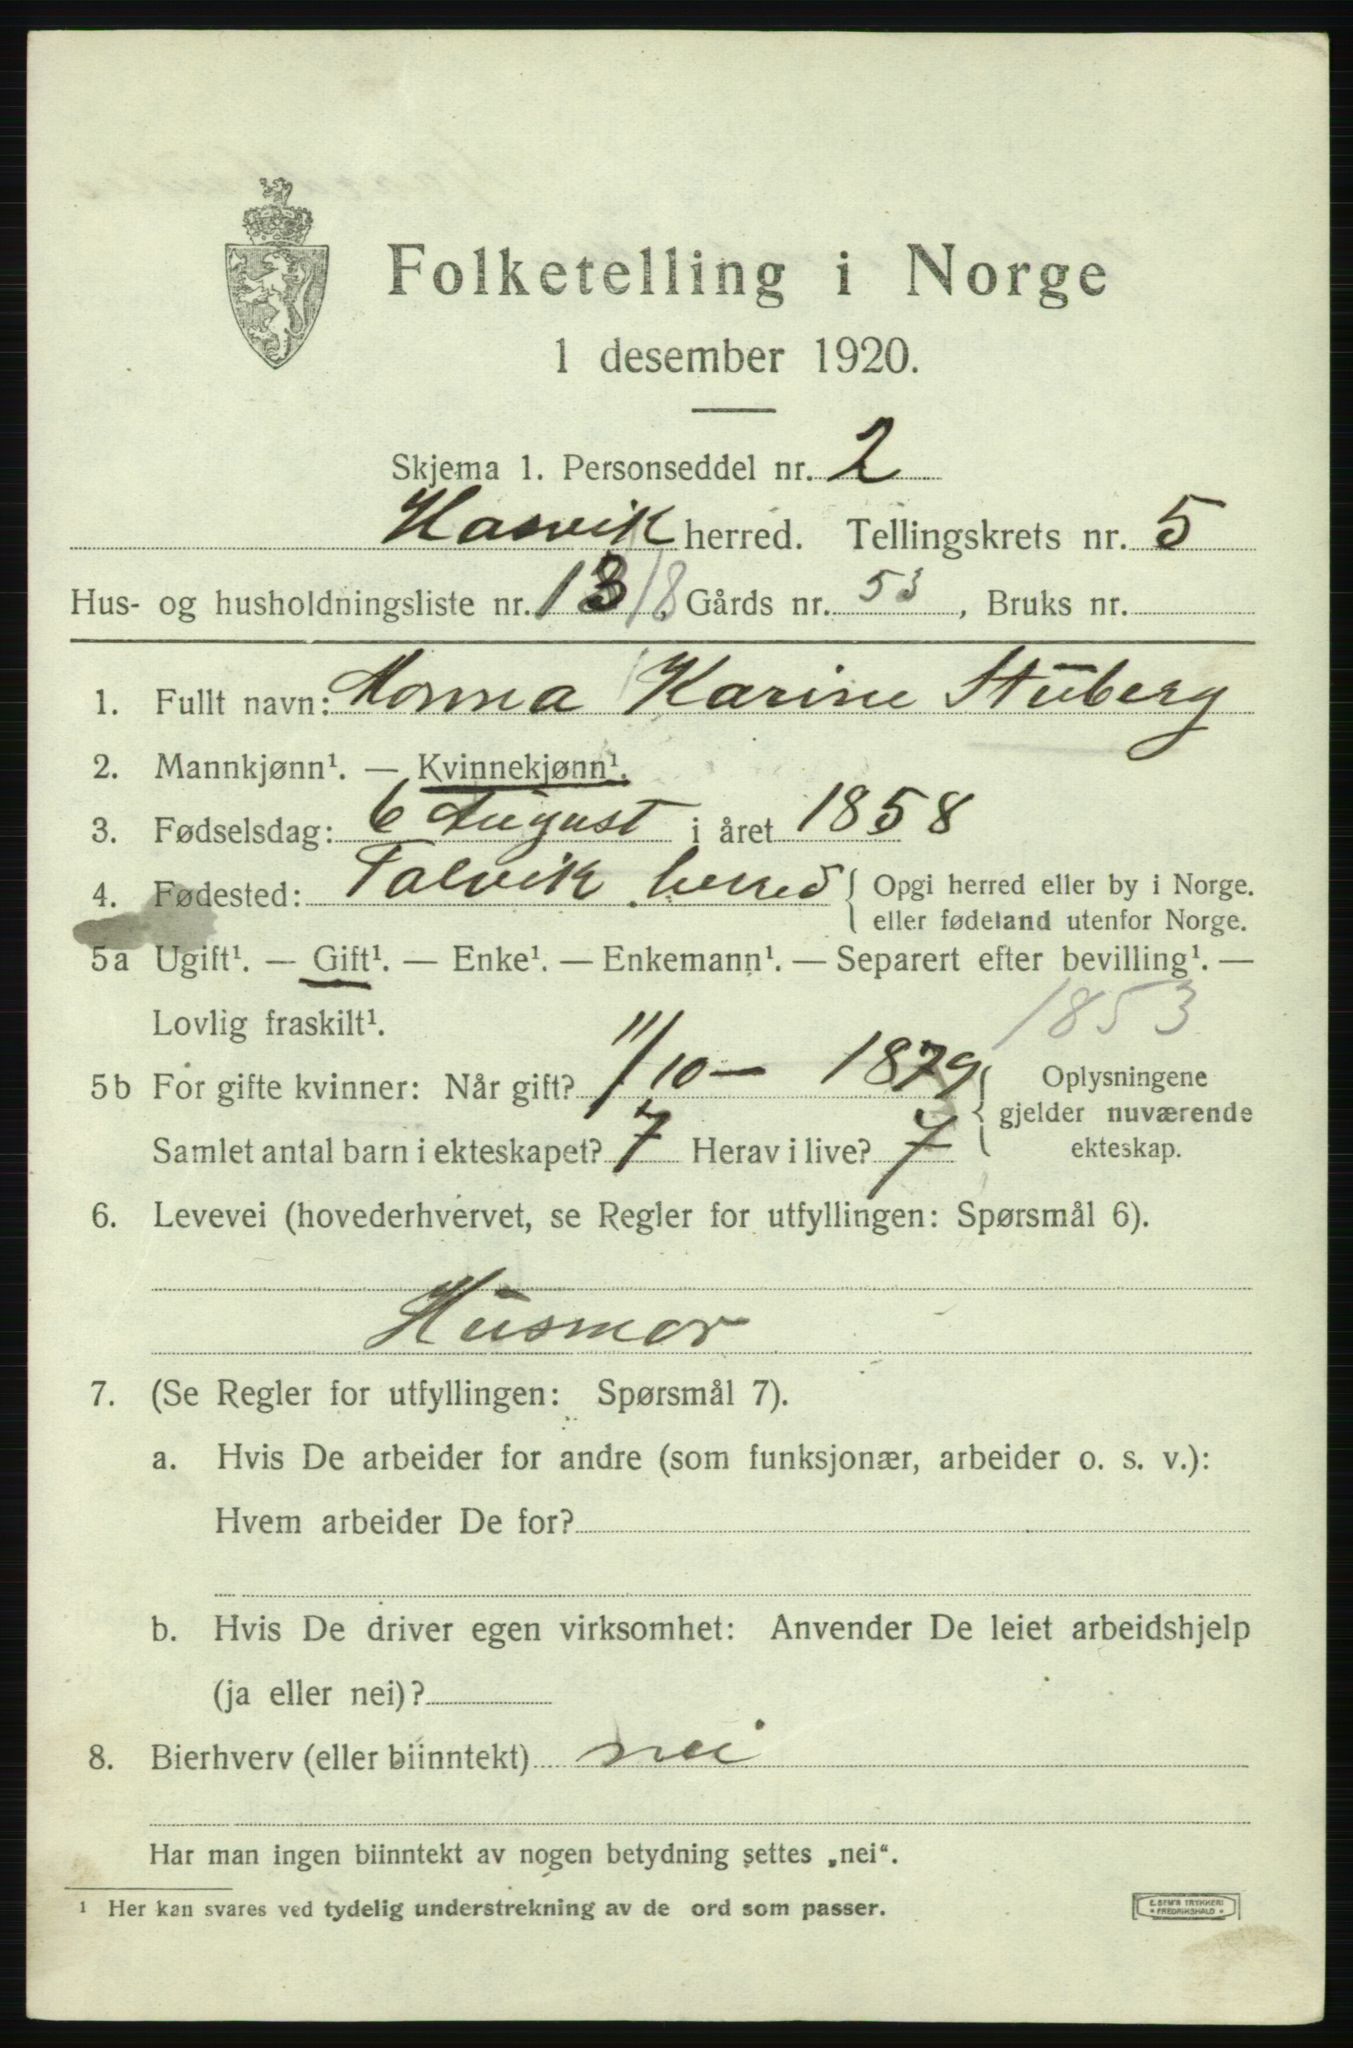 Folketelling i Norge
1 desember 1920.
Skjema 1. Personseddel nr. 2
Hasvik herred. Tellingskrets nr. 5
Hus- og husholdningsliste nr. 13 18, Gårds nr. 53, Bruks nr.
1. Fullt navn: Karine Stüberg
2. Mannkjønn¹. — Kvinnekjønn¹.
3. Fødselsdag: 6 August i året 1858
4. Fødested: Talvik herred { Opgi herred eller by i Norge.
eller fødeland utenfor Norge.
5a Ugift¹. — Gift¹. — Enke¹. — Enkemann¹. — Separert efter bevilling¹. —
Lovlig fraskilt¹. 1853
5b For gifte kvinner: Når gift? 11/10 — 1879 { Oplysningene
gjelder nuværende
Samlet antal barn i ekteskapet? 7 Herav i live? 7 ekteskap.
6. Levevei (hovederhvervet, se Regler for utfyllingen: Spørsmål 6).
Hüsmor
7. (Se Regler for utfyllingen: Spørsmål 7).
a. Hvis De arbeider for andre (som funksjonær, arbeider o. s. v.):
Hvem arbeider De for?
b. Hvis De driver egen virksomhet: Anvender De leiet arbeidshjelp
(ja eller nei)?
8. Bierhverv (eller biinntekt) nei
Har man ingen biinntekt av nogen betydning settes „nei“.
¹ Her kan svares ved tydelig understrekning av de ord som passer.
E. SEM'S TRYKKERI
* FREDRIKSHALD *